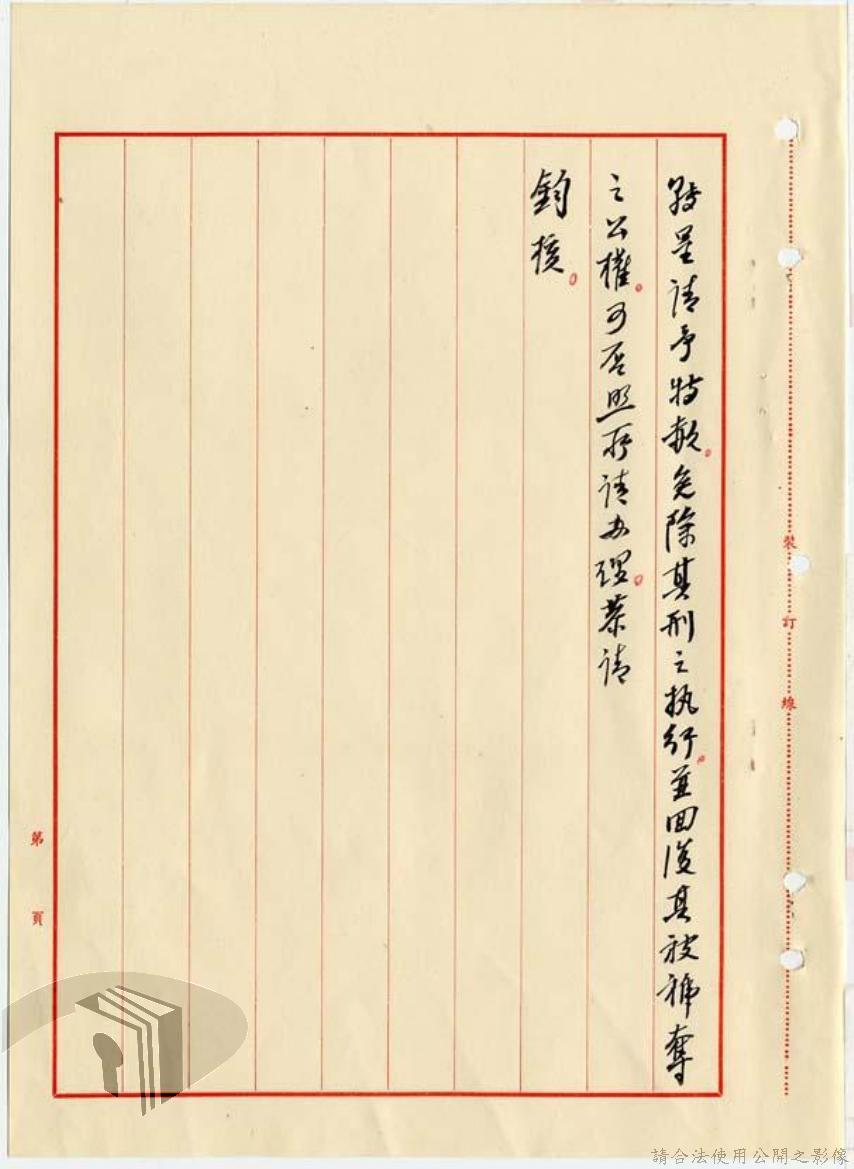 轉呈請予特赦。免除其刑之执行。並回復其被褫奪
之公權。可否照所请办理。恭请
鈞核。
裝訂線
第 頁
請合法使用公開之影像